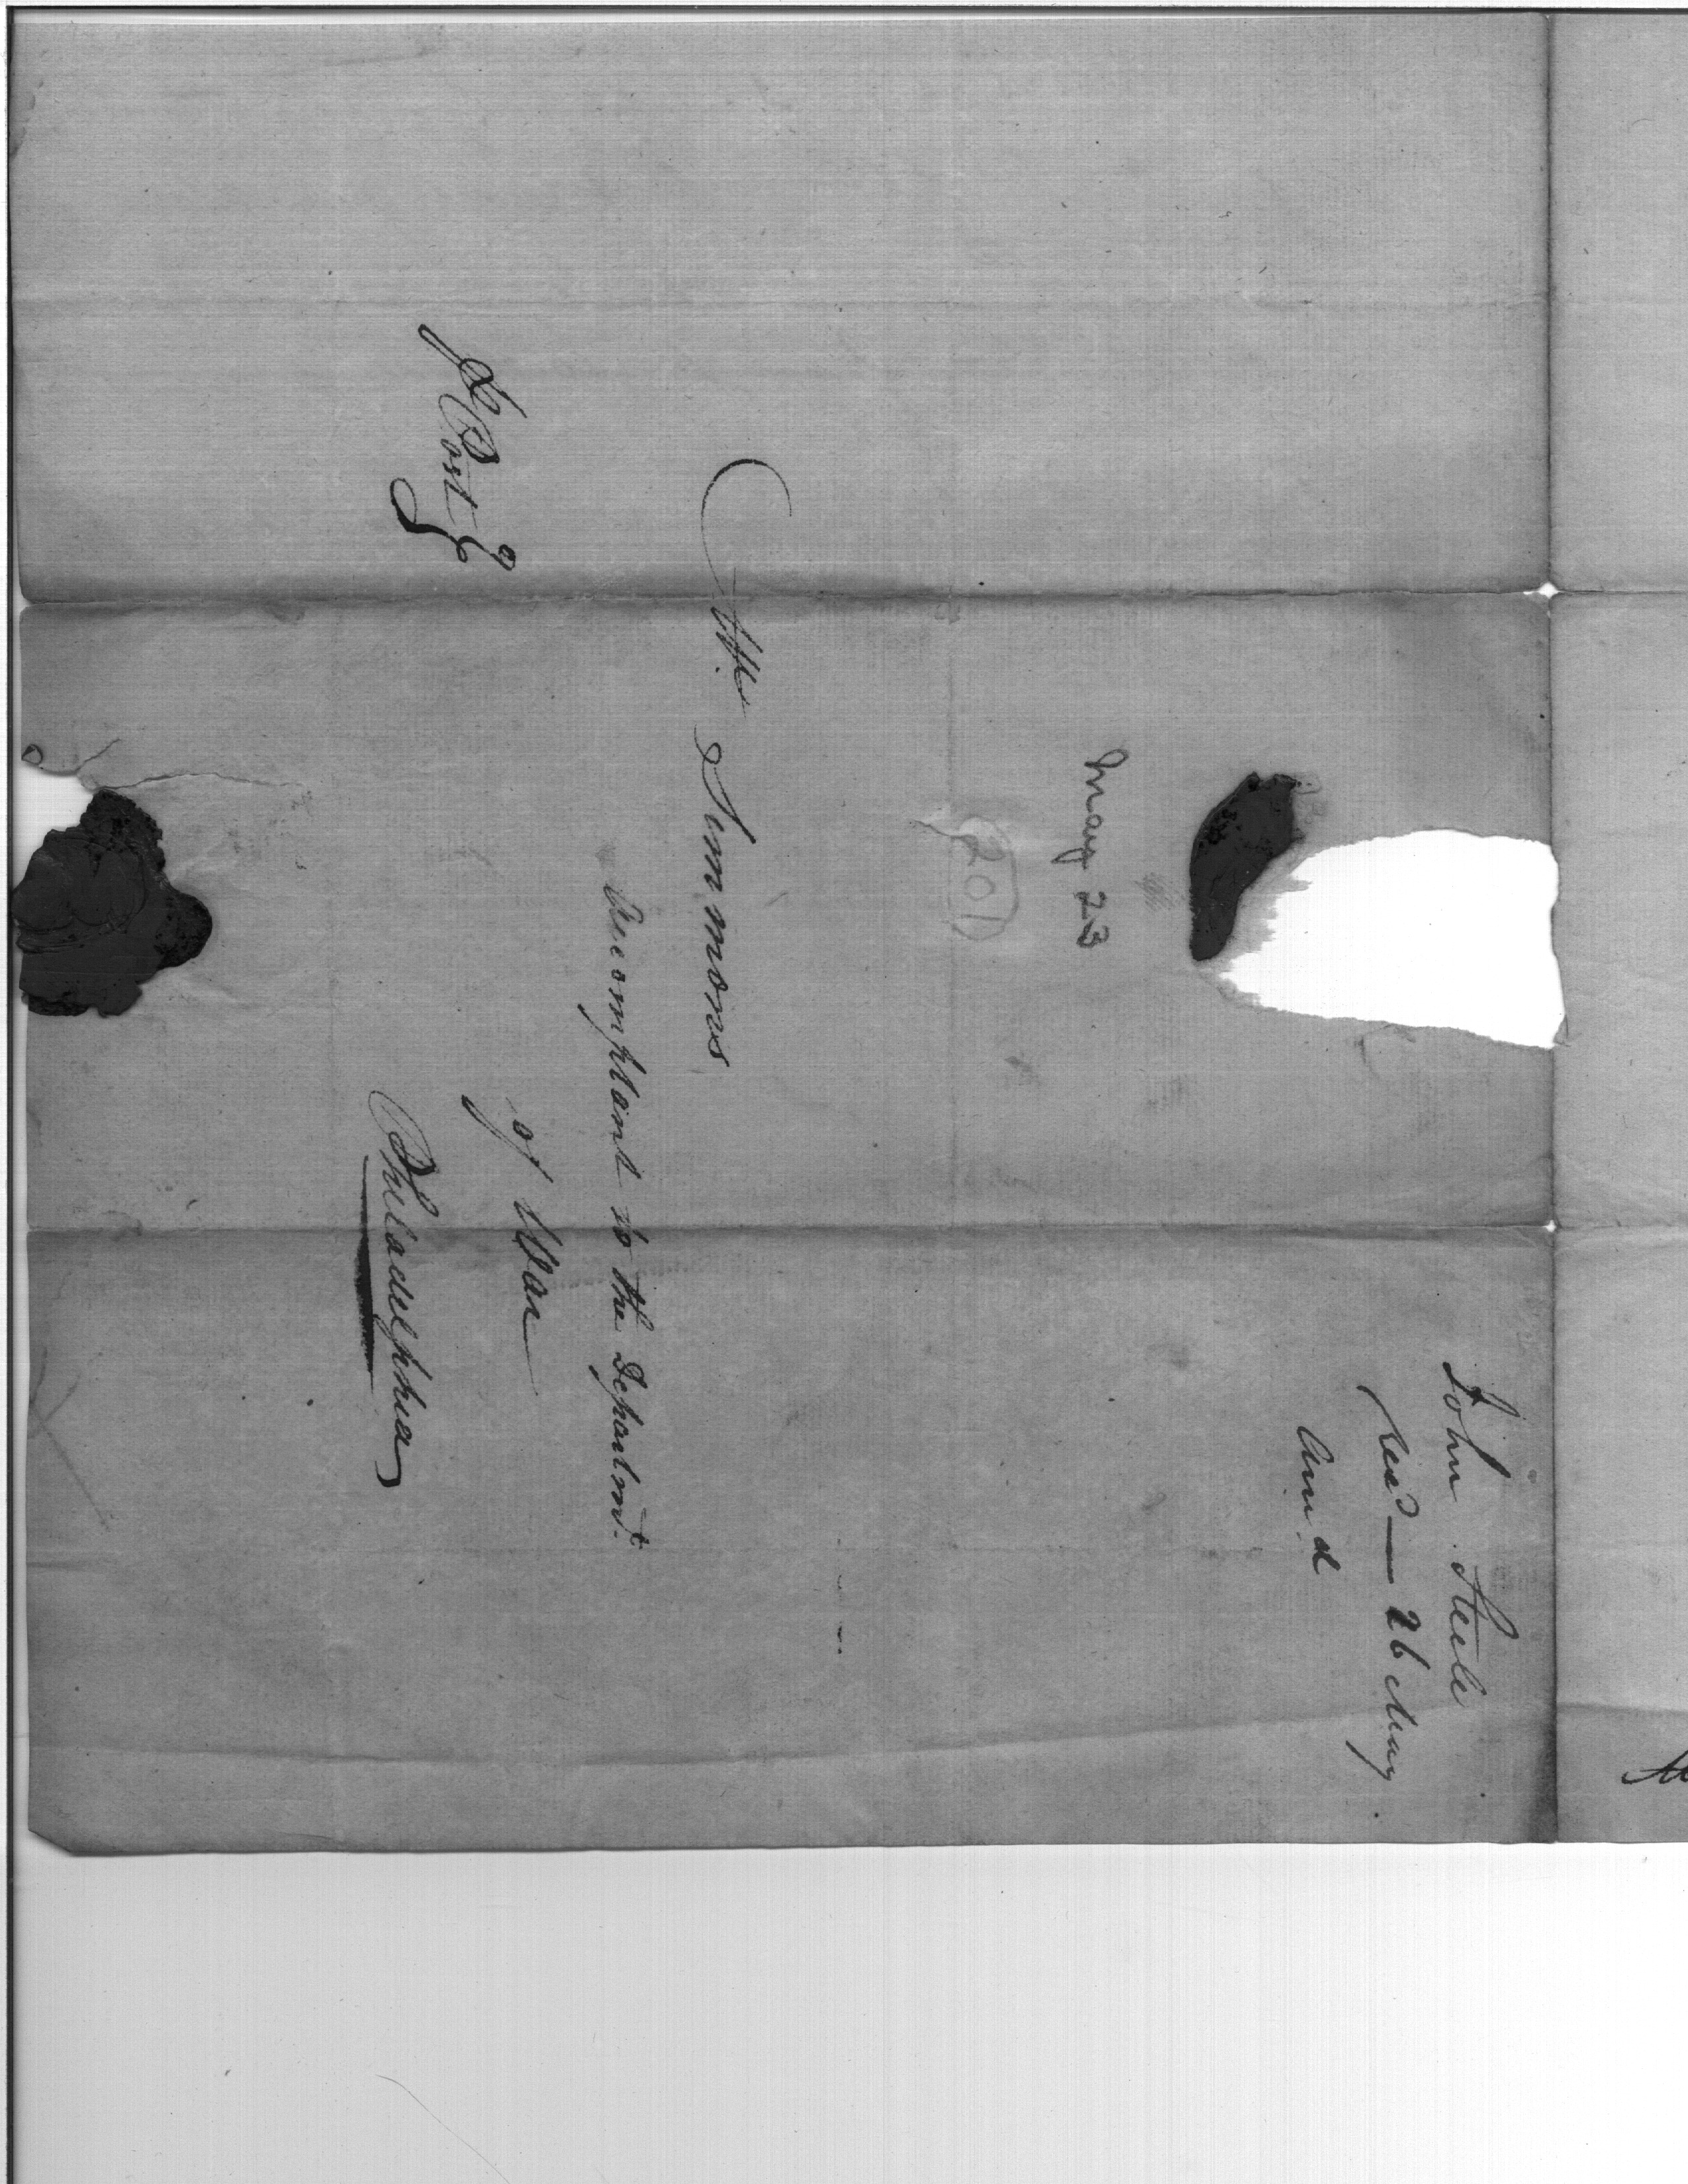 John Steele
Recd — 26 May
Ans.d
May 23
201
Wm Simmons
Accomptant to the Departmt.
of War
Philadelphia
Post